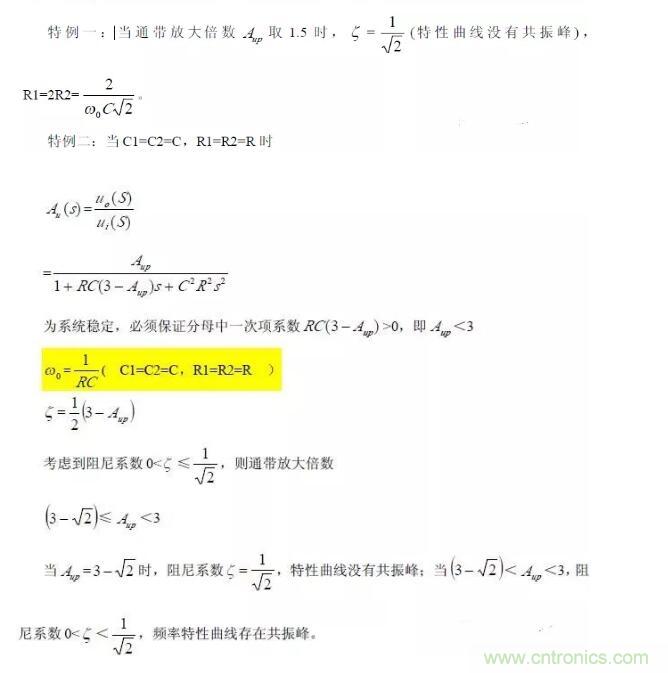 特例一：|当通带放大倍数 A_up 取 1.5 时，ζ = 1/√2 (特性曲线没有共振峰)，
R1=2R2= 2/(ω₀C√2)。
特例二：当 C1=C2=C，R1=R2=R 时
A_u(s) = u_o(S)/u_i(S)
= A_up/(1 + RC(3 − A_up)s + C²R²s²)
为系统稳定，必须保证分母中一次项系数 RC(3 − A_up) >0，即 A_up <3
ω₀ = 1/RC ( C1=C2=C，R1=R2=R ）
ζ = 1/2 (3 − A_up)
考虑到阻尼系数 0< ζ ≤ 1/√2，则通带放大倍数
(3 − √2) ≤ A_up <3
当 A_up = 3 − √2 时，阻尼系数 ζ = 1/√2，特性曲线没有共振峰；当 (3 − √2) < A_up <3，阻
尼系数 0< ζ < 1/√2，频率特性曲线存在共振峰。
www.cntronics.com